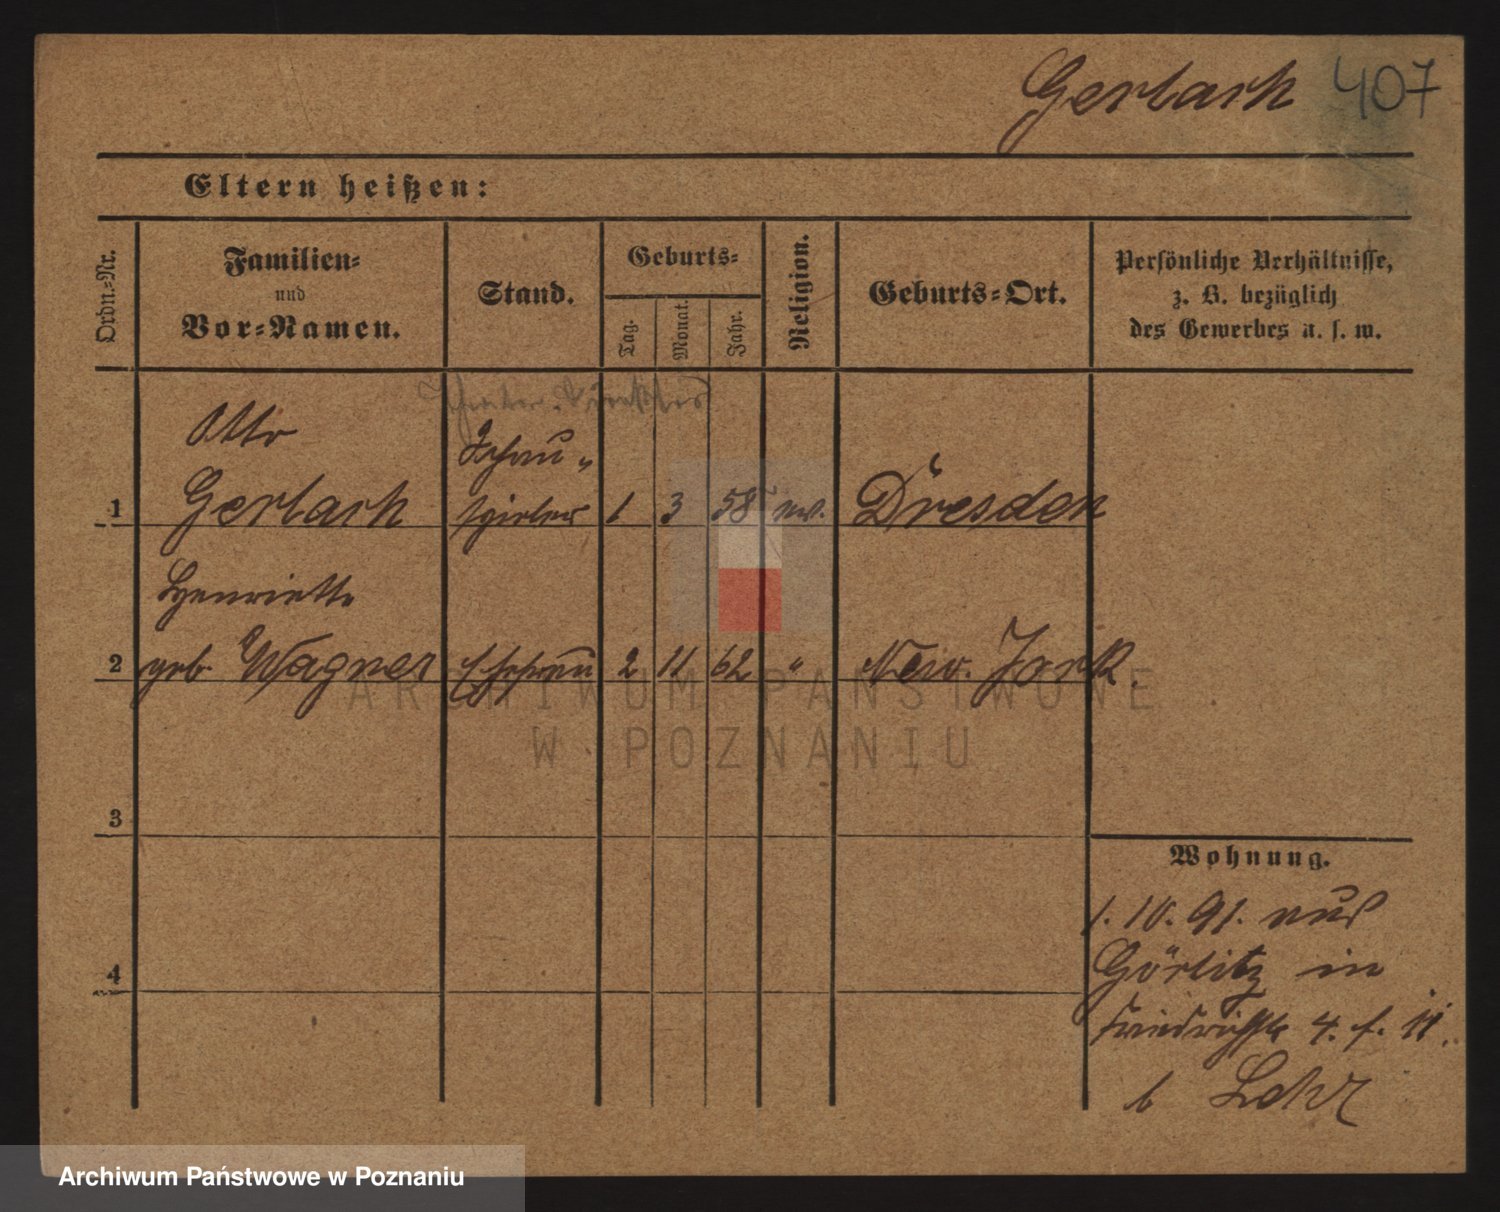 Gerlach 407
Eltern heißen:
Ordn.-Nr.
Familien-
und
Vor-Namen.
Stand.
Geburts-
Tag.
Monat.
Jahr.
Religion.
Geburts-Ort.
Persönliche Verhältnisse,
z. B. bezüglich
des Gewerbes u. s. w.
Theater-Direktor
Otto Schau-
1 Gerlach spieler 1 3 58 ev. Dresden
Henriette
2 geb. Wagner Ehefrau 2 11 62 " New. York.
3
4
Wohnung.
1. 10. 91. aus
Görlitz in
Friedrichstr 4. f. II.
b Lehr
ARCHIWUM PAŃSTWOWE
W POZNANIU
Archiwum Państwowe w Poznaniu